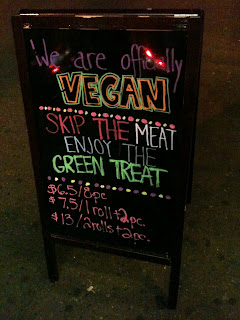 We are officially
VEGAN
SKIP THE MEAT
ENJOY THE
GREEN TREAT
$6.5/8pc
$7.5/1 roll+2pc.
$13/2rolls+2pc.